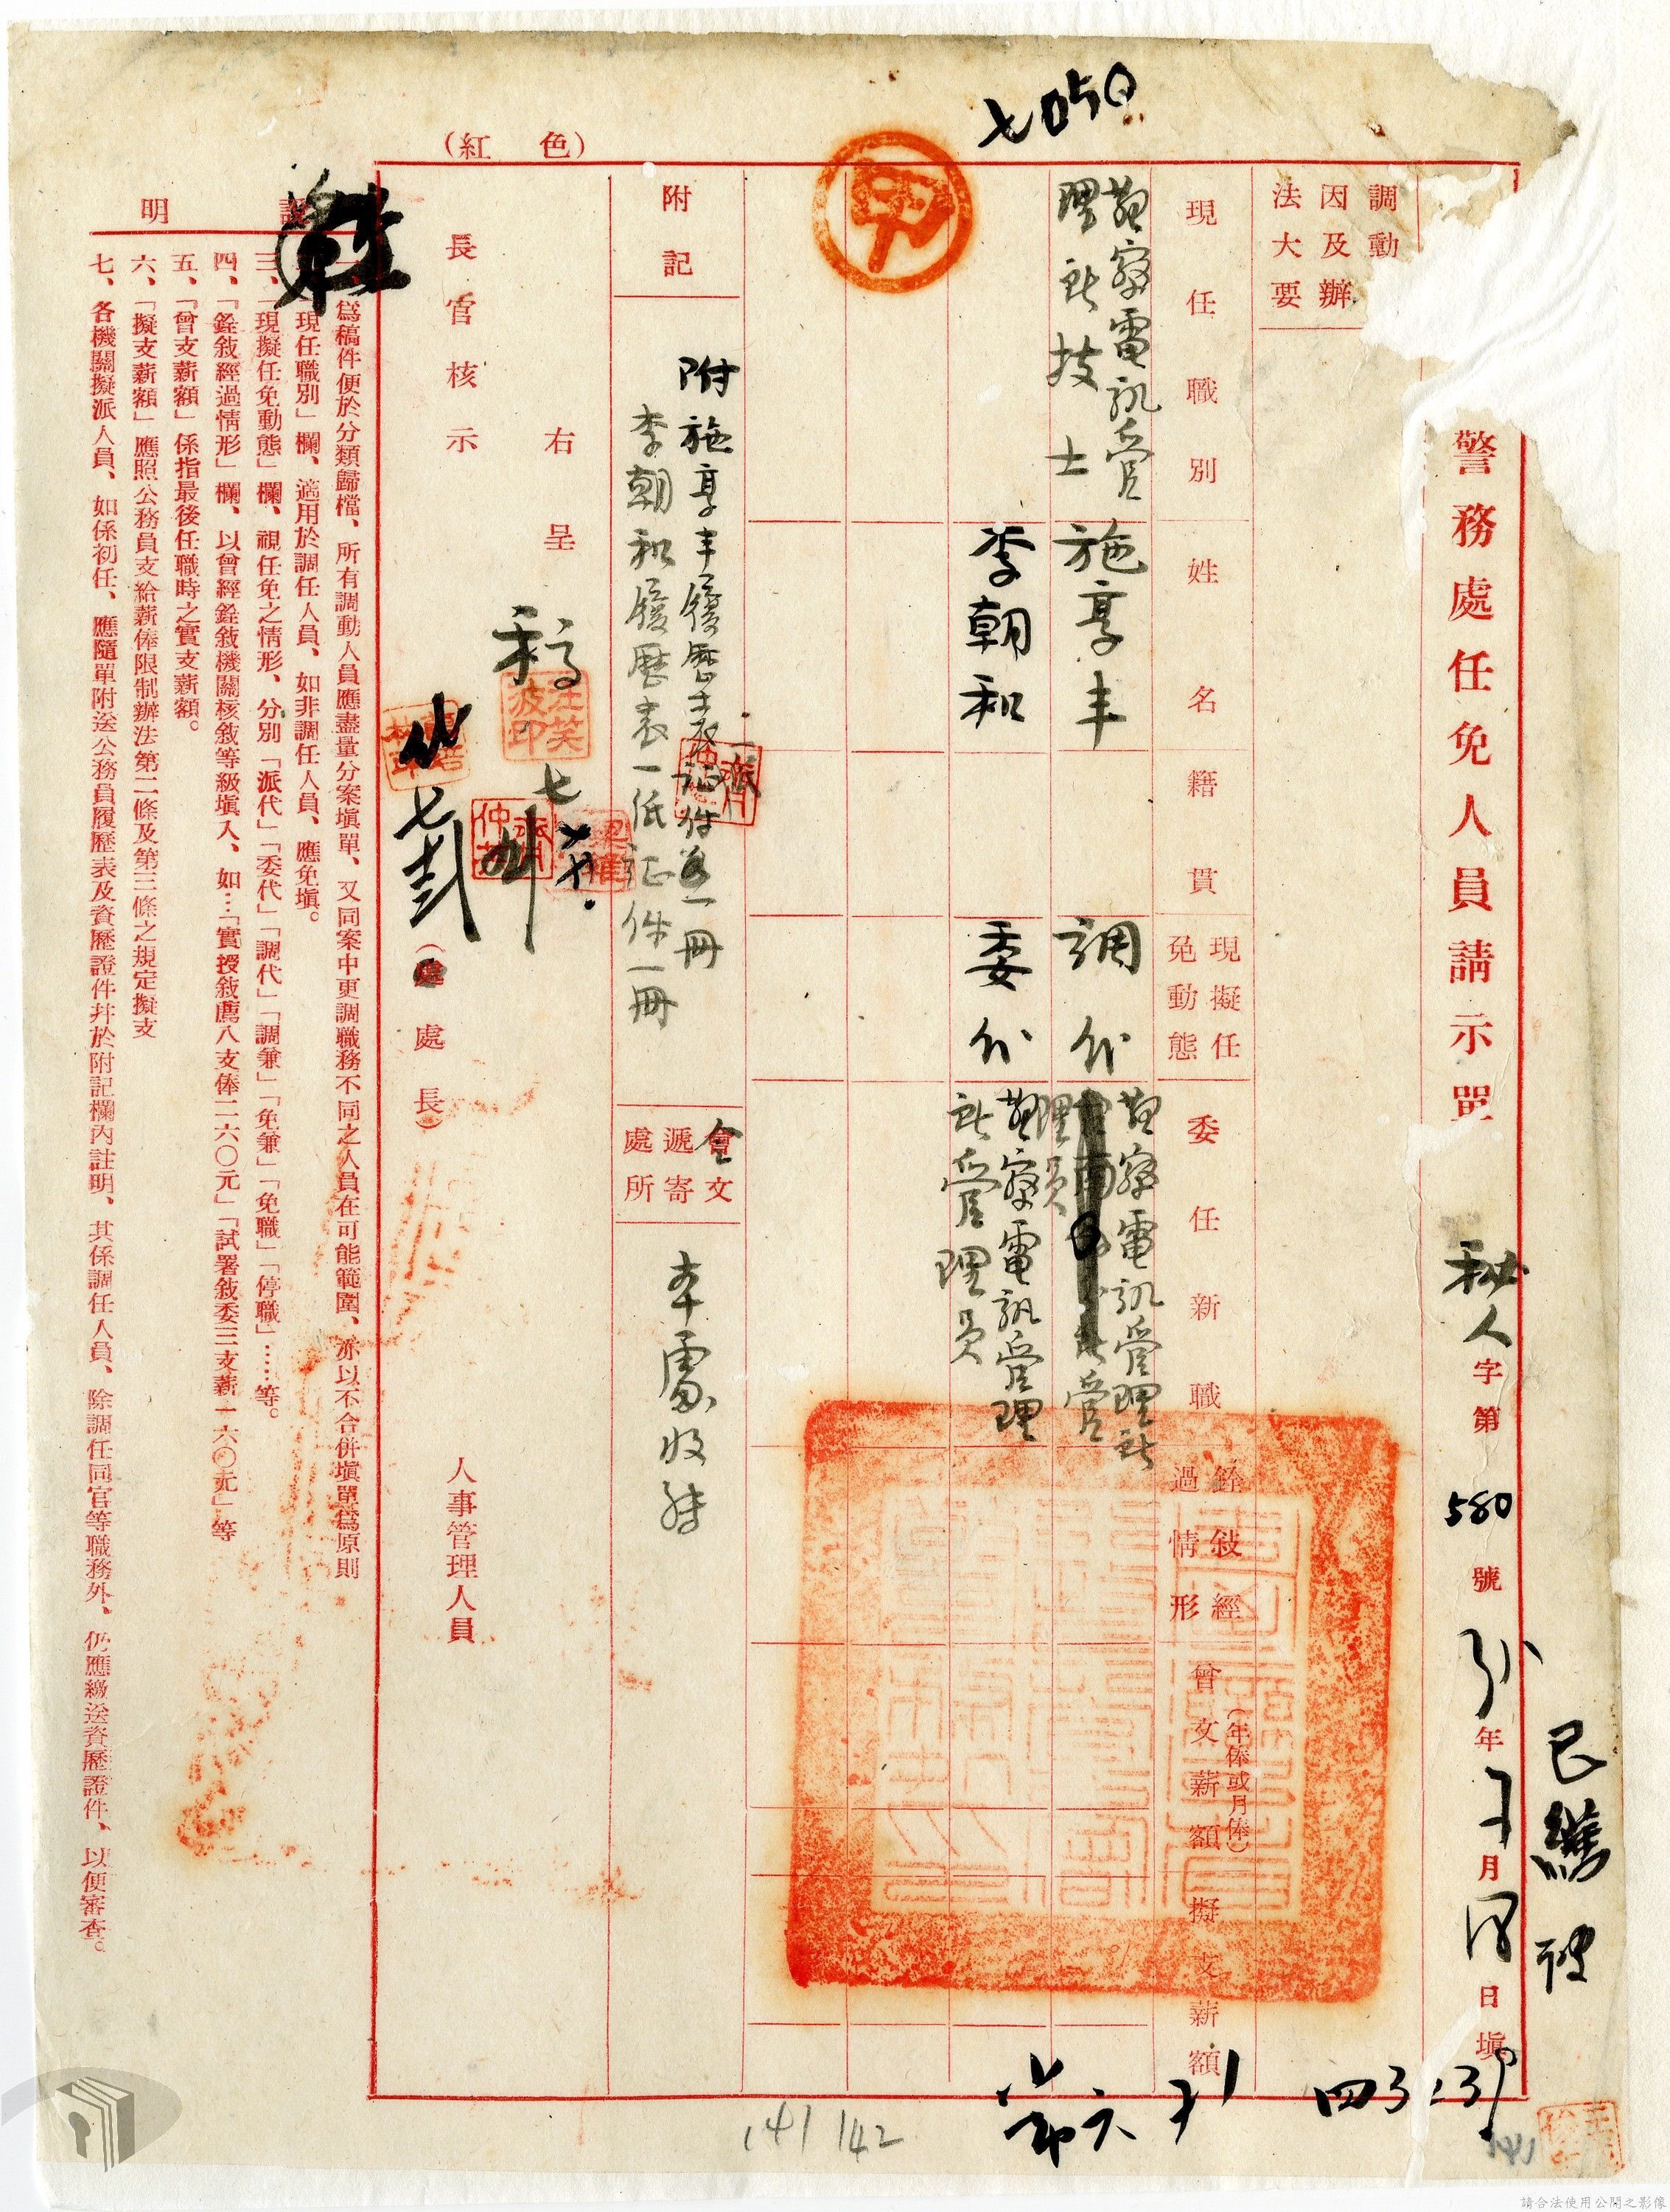 七〇五〇
(紅色)
警務處任免人員請示單
秘人字第580號
年
月
日填
已繕
調動
因及辦
法大要
現任職別
姓名
籍貫
現擬任
免動態
委任新職
銓敍經
過情形
曾支薪額
(年俸或月俸)
擬支薪額
警察電訊管
理所技士
施享丰
調代
警察電訊管理所
管
理員
李朝和
委代
警察電訊管理
所管理員
附記
附施享丰履歷表證件各一冊
李朝和履歷表一紙證件一冊
會文
遞寄
處所
本處收轉
右呈
長官核示
稿
處長
人事管理人員
說明
一、為稿件便於分類歸檔、所有調動人員應盡量分案填單、又同案中更調職務不同之人員在可能範圍、亦以不合併填單為原則
現任職別」欄、適用於調任人員、如非調任人員、應免填。
三、「現擬任免動態」欄、視任免之情形、分別「派代」「委代」「調代」「調兼」「免兼」「免職」「停職」……等。
四、「銓敍經過情形」欄、以曾經銓敍機關核敍等級填入、如…「實授敍薦八支俸二六〇元」「試署敍委三支薪一六〇元」等
五、「曾支薪額」係指最後任職時之實支薪額。
六、「擬支薪額」應照公務員支給薪俸限制辦法第二條及第三條之規定擬支
七、各機關擬派人員、如係初任、應隨單附送公務員履歷表及資歷證件幷於附記欄內註明、其係調任人員、除調任同官等職務外、仍應繳送資歷證件、以便審查。
141 142
請合法使用公開之影像